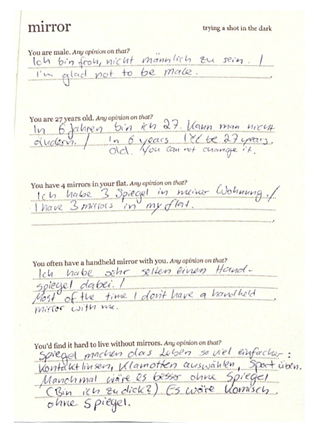 mirror
trying a shot in the dark
You are male. Any opinion on that?
Ich bin froh, nicht männlich zu sein. /
I'm glad not to be male.
You are 27 years old. Any opinion on that?
In 6 Jahren bin ich 27. Kann man nicht
ändern. / In 6 years I'll be 27 years
old. You can not change it.
You have 4 mirrors in your flat. Any opinion on that?
Ich habe 3 Spiegel in meiner Wohnung. /
I have 3 mirrors in my flat.
You often have a handheld mirror with you. Any opinion on that?
Ich habe sehr selten einen Hand-
spiegel dabei. /
Most of the time I don't have a handheld
mirror with me.
You'd find it hard to live without mirrors. Any opinion on that?
Spiegel machen das Leben so viel einfacher:
Kontaktlinsen, Klamotten auswählen, Sport üben.
Manchmal wäre es besser ohne Spiegel
(Bin ich zu dick?) Es wäre komisch
ohne Spiegel.